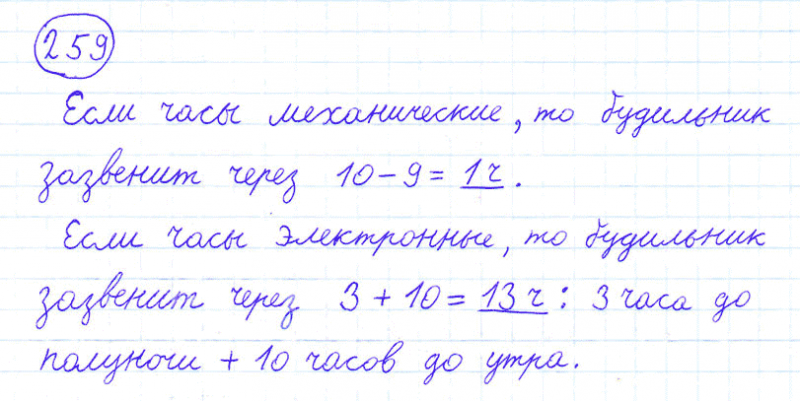 259
Если часы механические, то будильник
зазвенит через 10 - 9 = 1 ч.
Если часы электронные, то будильник
зазвенит через 3 + 10 = 13 ч: 3 часа до
полуночи + 10 часов до утра.